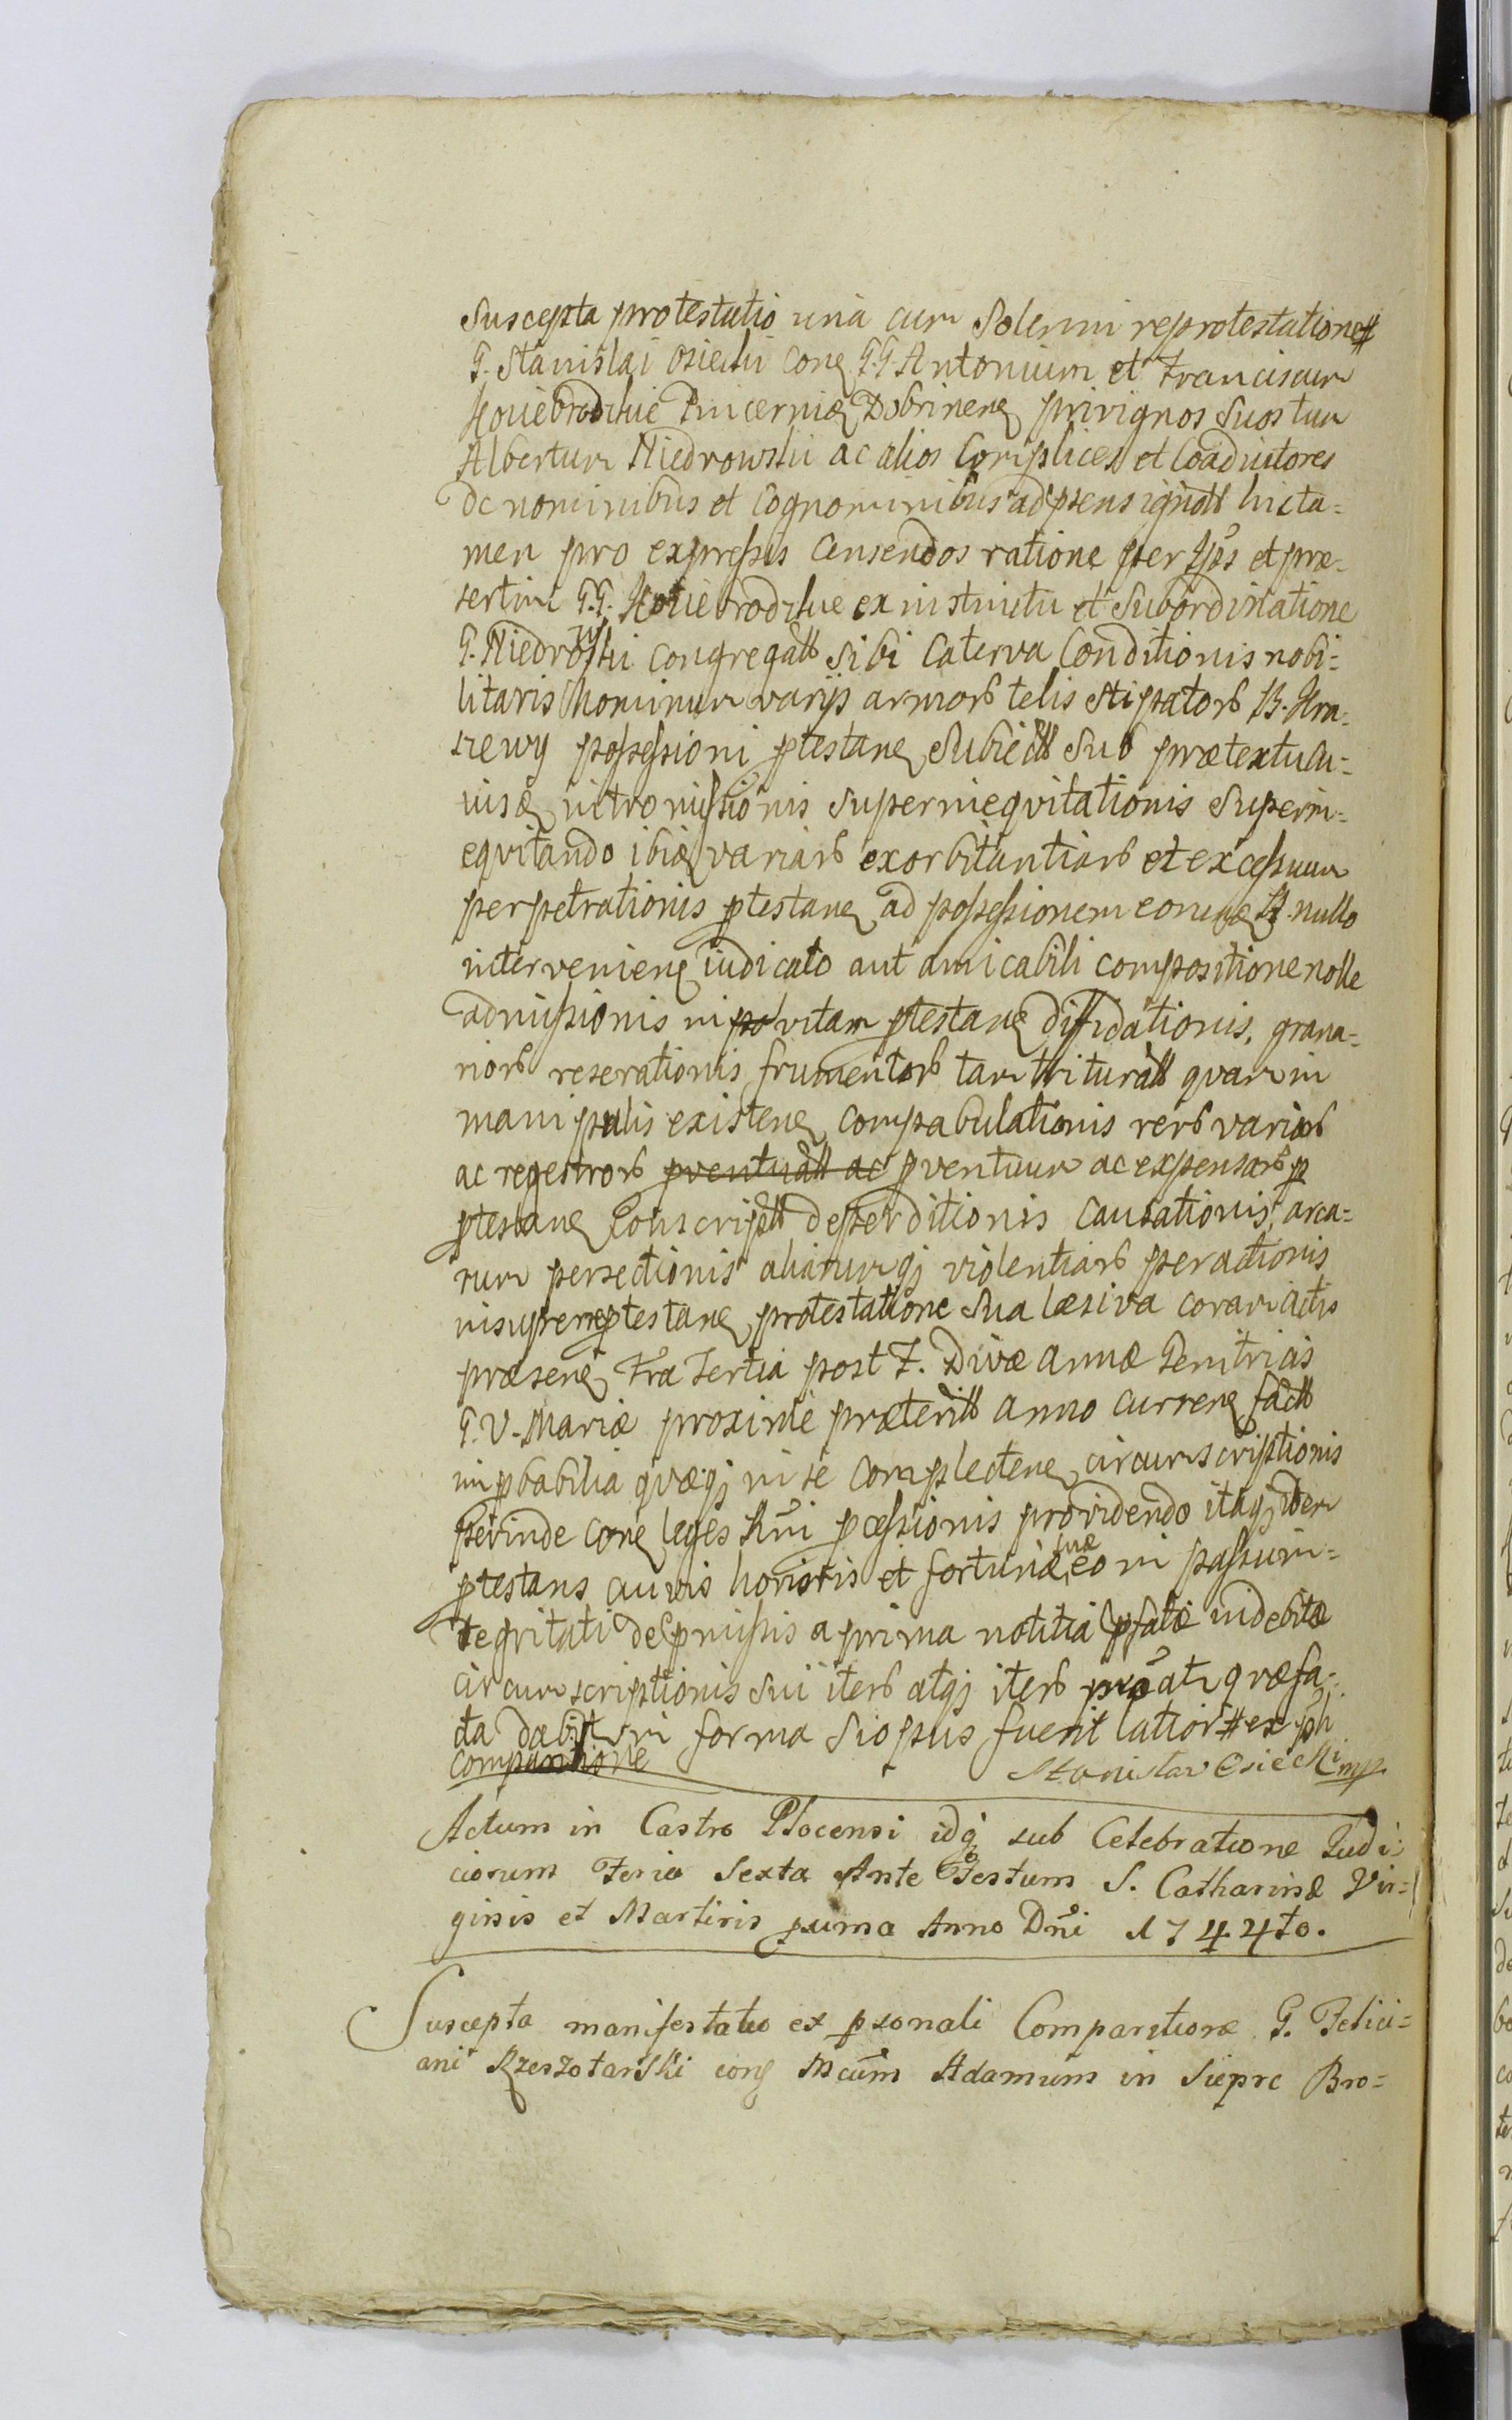 Suscepta protestatio una cum Solenni reprotestatione #
G. Stanislai Osiecki con. G.G. Antonium et Franciscum
Pincernid. Dobrinen. privignos suos tum
Albertum Niedrowski ac alios Complices et Coadiutores
de nominibus et Cognominibus ad psens ignott hic ta=
men pro expressis Censendos ratione per Ipos et præ=
sertim G.G. ex instinctu et Subordinatione
G. Niedrowski congregatt Sibi Caterva Conditionis nobi=
litaris hominum varijs armorb telis Stipatorb B. Kra=
szewy possessioni ptestan. Subiectt Sub prætextu cu=
iusd. intromissionis Superinequitationis Superin=
equitando ibid. variarb exorbitantiarb et excessuum
perpetrationis ptestan. ad possessionem eorund. B. nullo
intervenien. iudicato aut amicabili compositione nolle
admissionis in vitam ptestan. diffidationis, grana=
riorb reserationis frumentorb tam trituratt quam in
manipulis existen. compabulationis rerb variarb
ac regestrorb pventuatt ac pventuum ac expensarb p
ptestan. Conscriptt desperditionis causationis, arca=
rum persectionis aliarumqj violentiarb peractionis
insuper ptestan. protestatione Sua læsiva coram Actis
præsen. Fra Tertia post F. Divæ Annæ Genitricis
G. V. Mariæ proxime præteritt anno curren. factt
impbabilia quæqj in se complecten. circumscriptionis
perinde con. leges Rni pcessionis providendo itaqj idem
ptestans cuivis honoris et fortunæ suæ eo in passu in=
tegritati de pmissis a prima notitia pfatæ indebitæ
circumscriptionis sui iterb atqj iterb quæfa=
ta dabit in forma Si opus fuerit latiori # ex psli
comparitione
Stanisław Osiecki mp
Actum in Castro Plocensi idq sub Celebratione Judi=
ciorum Feria Sexta Ante Festum S. Catharinæ Vir=
ginis et Martiris pxima Anno Dni 1744to.
Suscepta manifestatio ex psonali Comparitione G. Felici=
ani Rzeszotarski con. Mcum Adamum in Sieprc Bro=